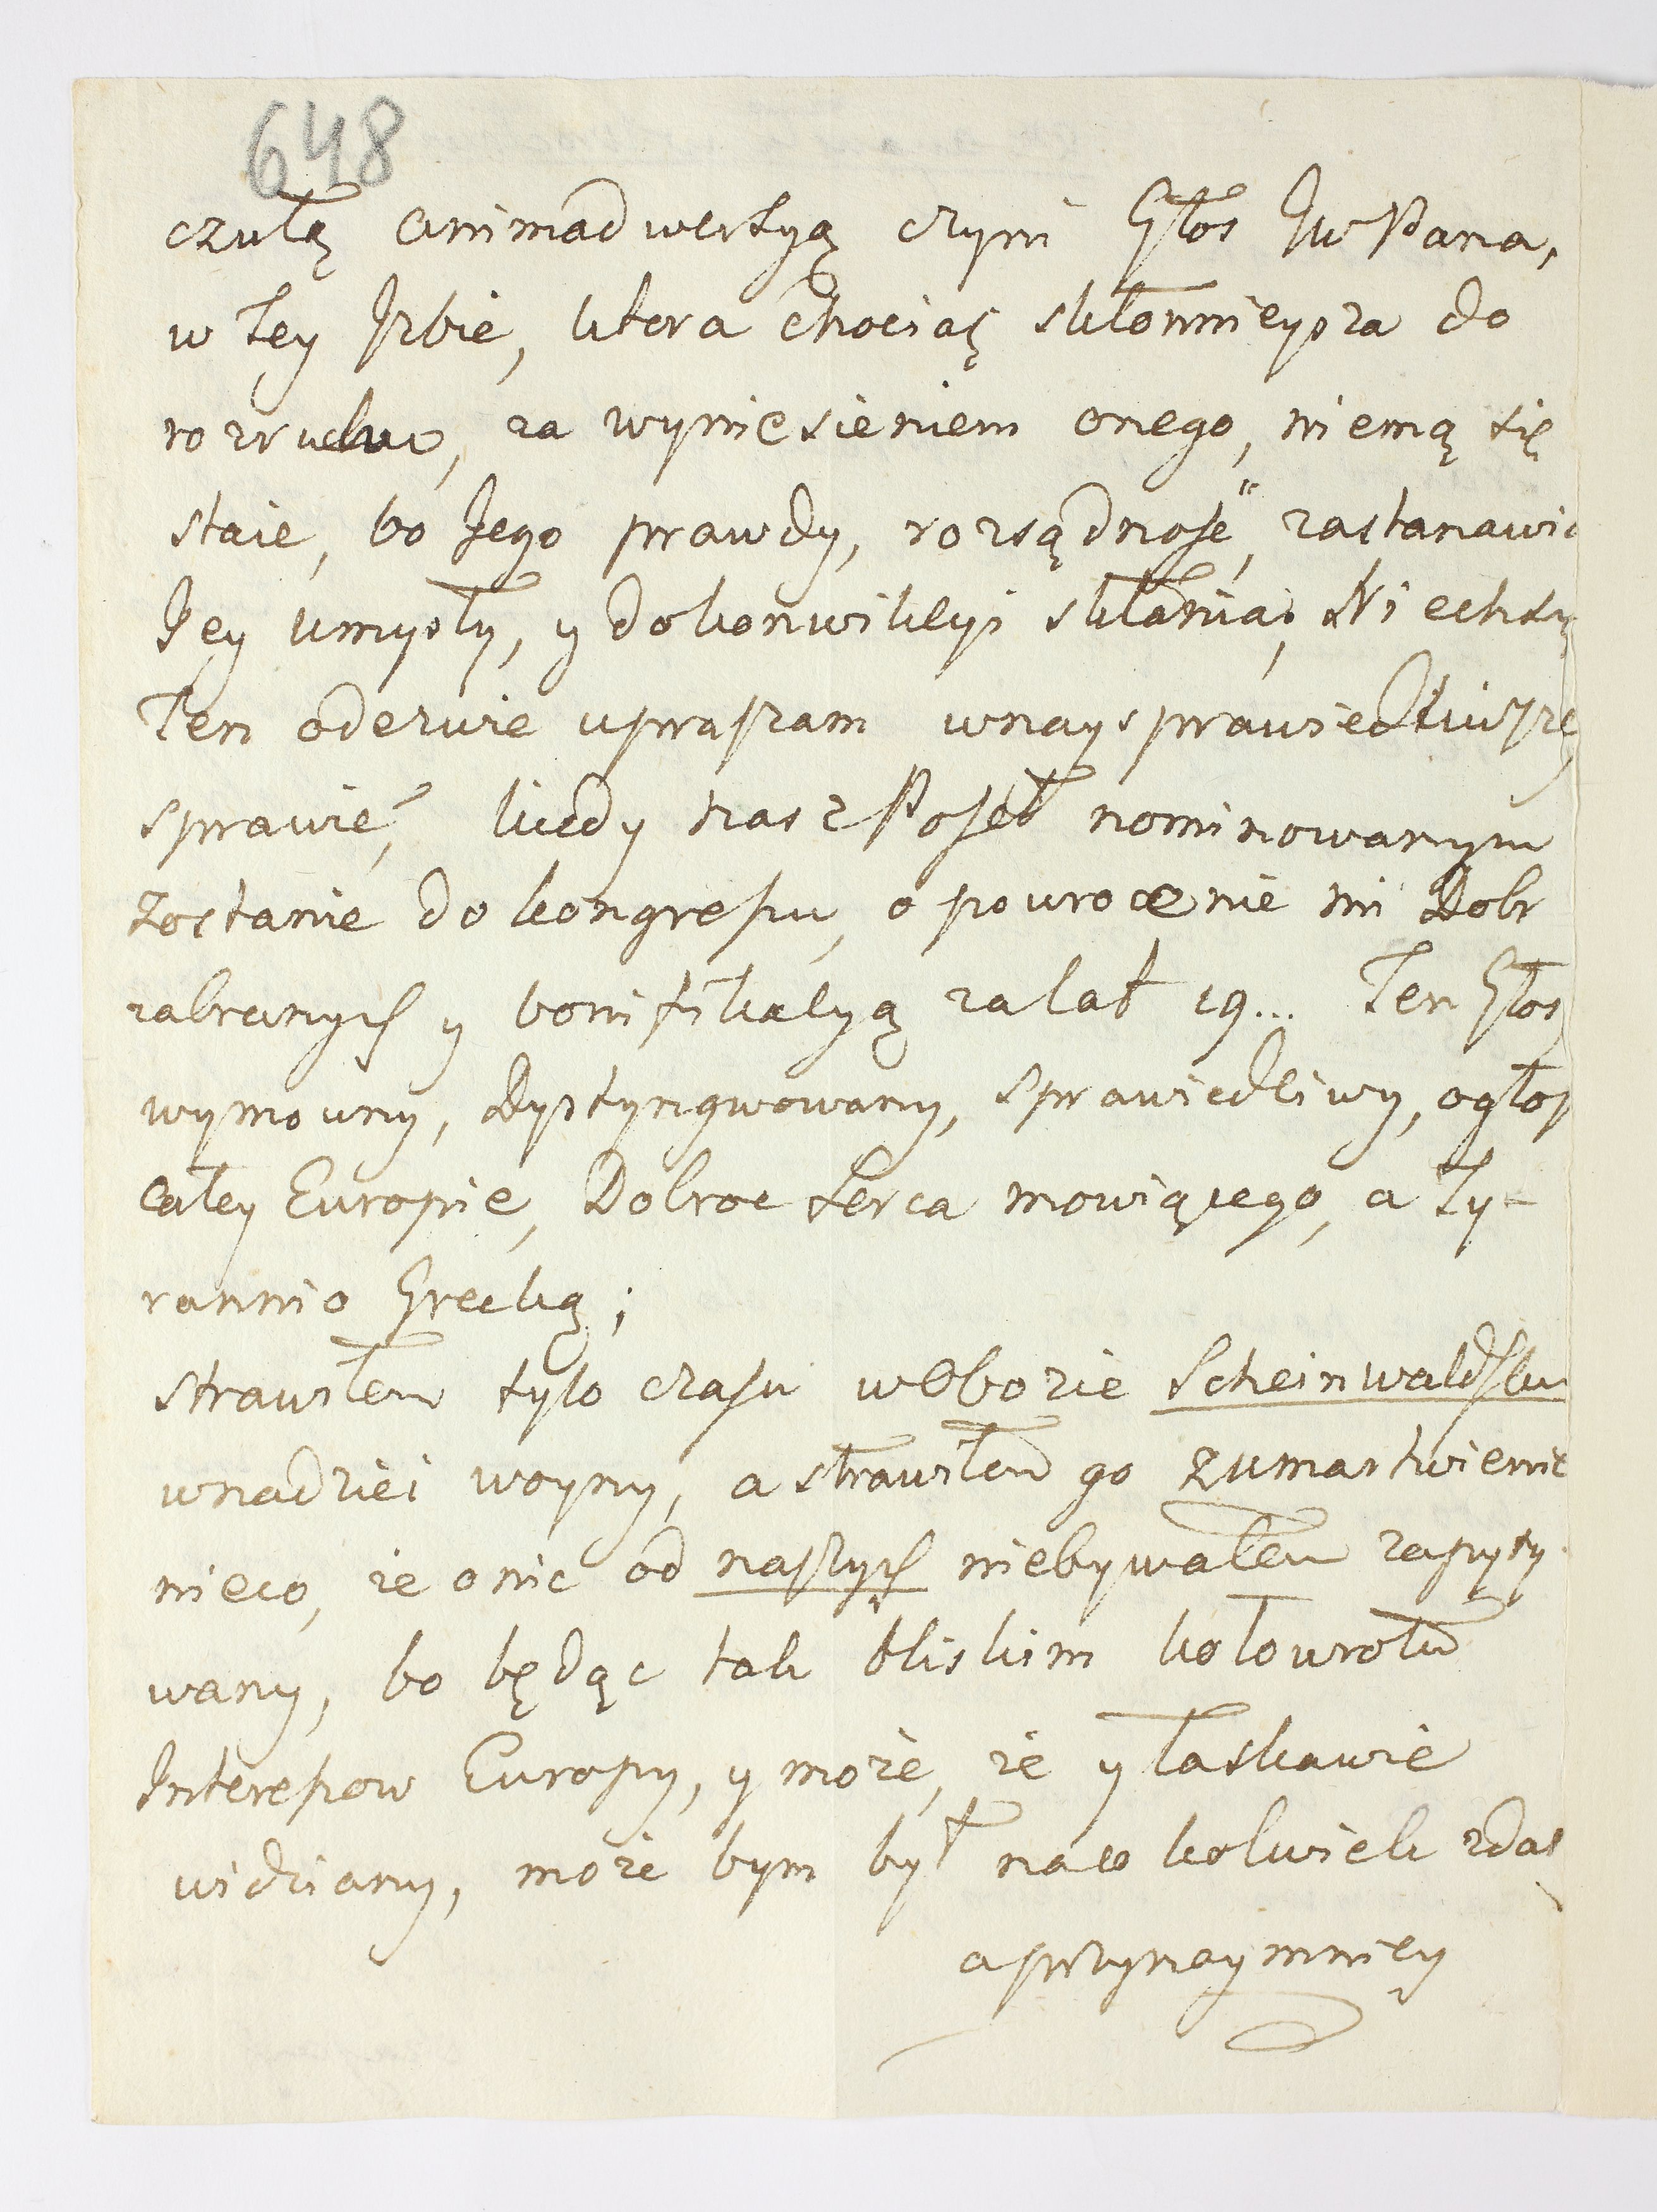 648
czułą animadwersyą czyni Głos JwPana,
w tey Jzbie, ktora chociaż skłonnieysza do
rozruchu, za wyniesieniem onego, niemą się
staie, bo Jego prawdy, rozsądność, zastanawia
Jey umysły, y do konwikcyi skłania; Niech się
Ten ozderwie upraszam w naysprawiedliwsze
sprawie, kiedy nasz Poseł nominowanym
zostanie do kongressu, o powrocenie mi Dobr
zabranych y bonifikacyą za lat 19... Ten Głos
wymowny, Dystyngwowany, sprawiedliwy, ogłos
całey Europie, Dobroc serca mowiącego, a Ty-
rannio Grecką;
strawiłem tylo czasu w Obozie Scheinwaldsku
w nadziei woyny, a strawiłem go z umartwienie
nieco, ze o nic od naszych nie bywałem zapyty
wany, bo będąc tak bliskim kołowrotu
Interessow Europy, y może, że y łaskawie
widziany, może bym był na co kolwiek zdat
a przynaymniey